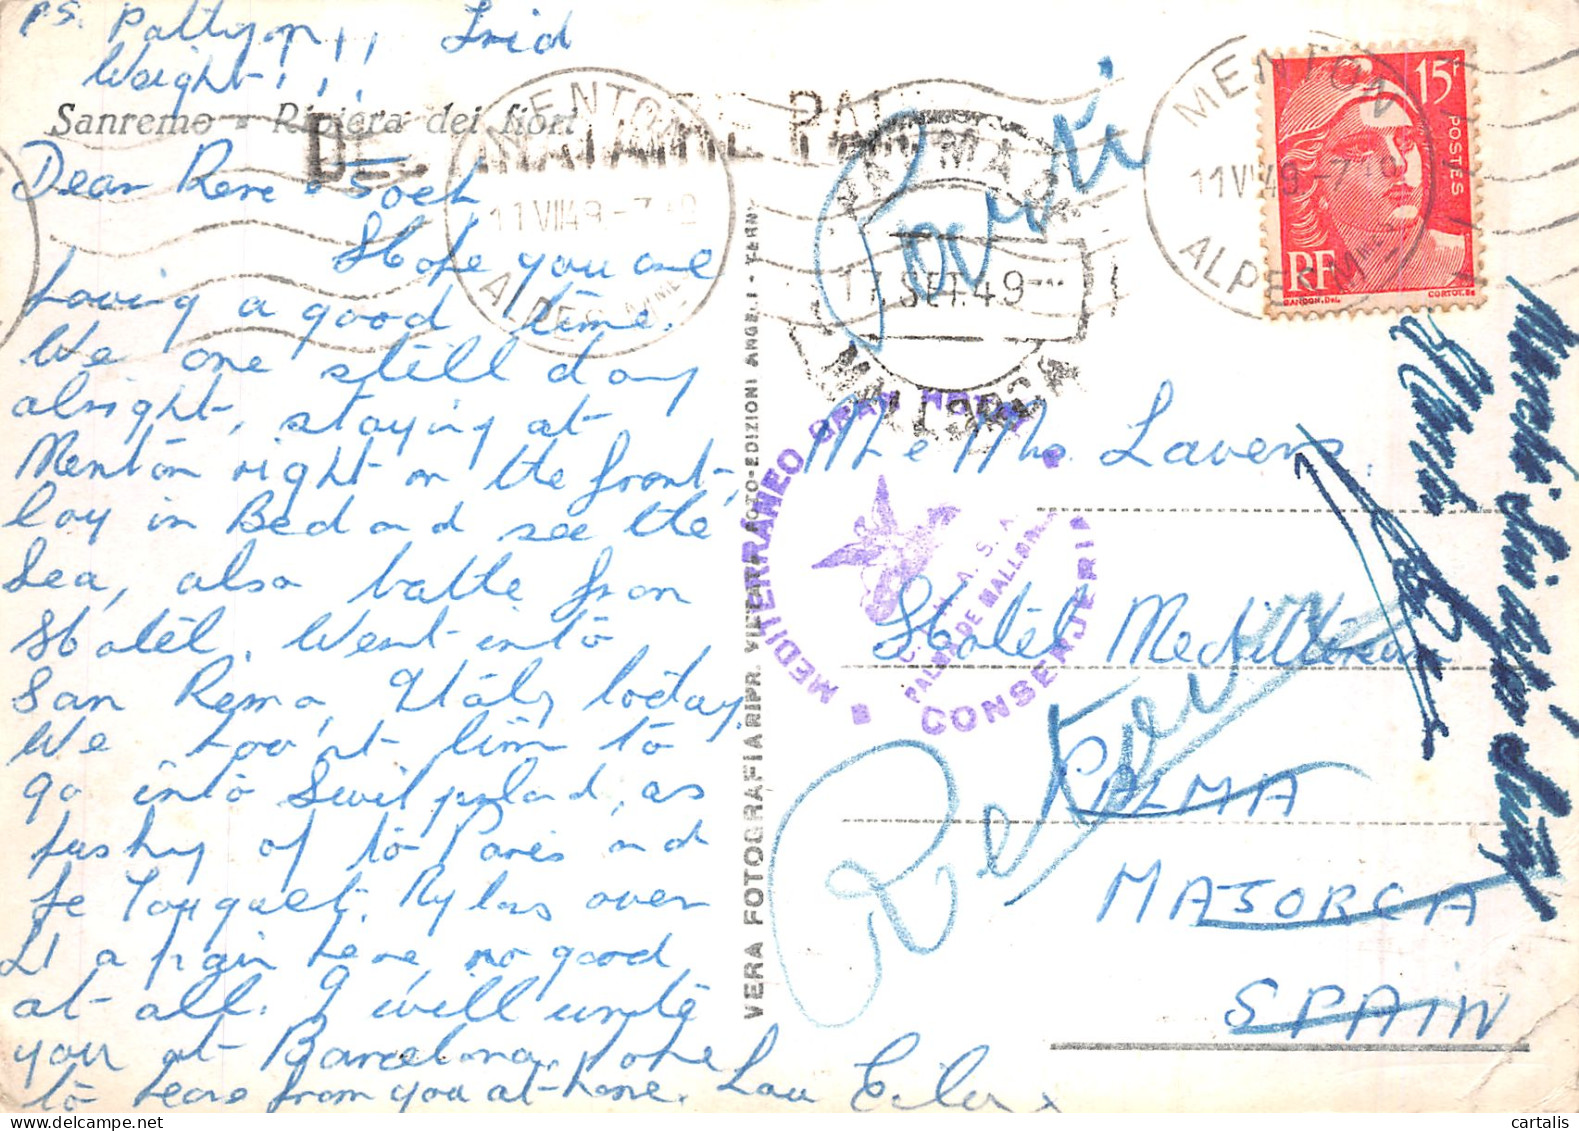 PS. Pattyon!! Enid
Weight!!!
Sanremo - Riviera dei fiori
Dear Rene &
Hope you are
having a good time.
We are still day
alright, staying at
Menton right on the front,
lay in Bed and see the
Sea, also bathe from
Hotel. Went into
San Remo, Italy today.
We haven't time to
go into Switzerland, as
pushing off to Paris and
Le Touquet. Nylons over
£1 a pair here, no good
at all. I will write
you at Barcelona, hope
to hear from you at home. Lou Eileen x
MENTON
11 VII 49 - 7
ALPES MMES
DESTINATAIRE PAR
PALMA
17 SET. 49
MALLORCA
Parti
MENTON
11 VII 49 - 7
ALPES MMES
15F
POSTES
RF
GANDON. DEL.
CORTOT. SC
VERA FOTOGRAFIA RIPR. VIETERRANEO FOTO-EDIZIONI ANGELI - TERNI
MEDITERRANEO GRAN HOTEL
C. H. A. S. A.
PALMA DE MALLORCA
CONSERJERIA
Mr & Mrs. Lavens,
Hotel Mediterranean
PALMA
MAJORCA
SPAIN
Retour